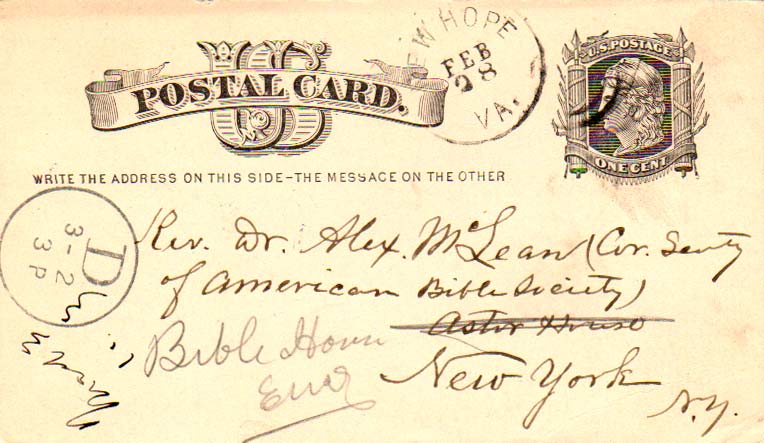 U.S. POSTAGE
ONE CENT
US
POSTAL CARD.
EW HOPE
FEB
28
VA.
WRITE THE ADDRESS ON THIS SIDE–THE MESSAGE ON THE OTHER
D
3-2
3P
Rev. Dr. Alex. McLean (Cor. Secty
of American Bible Society)
Astor House
Bible House
New York
N.Y.